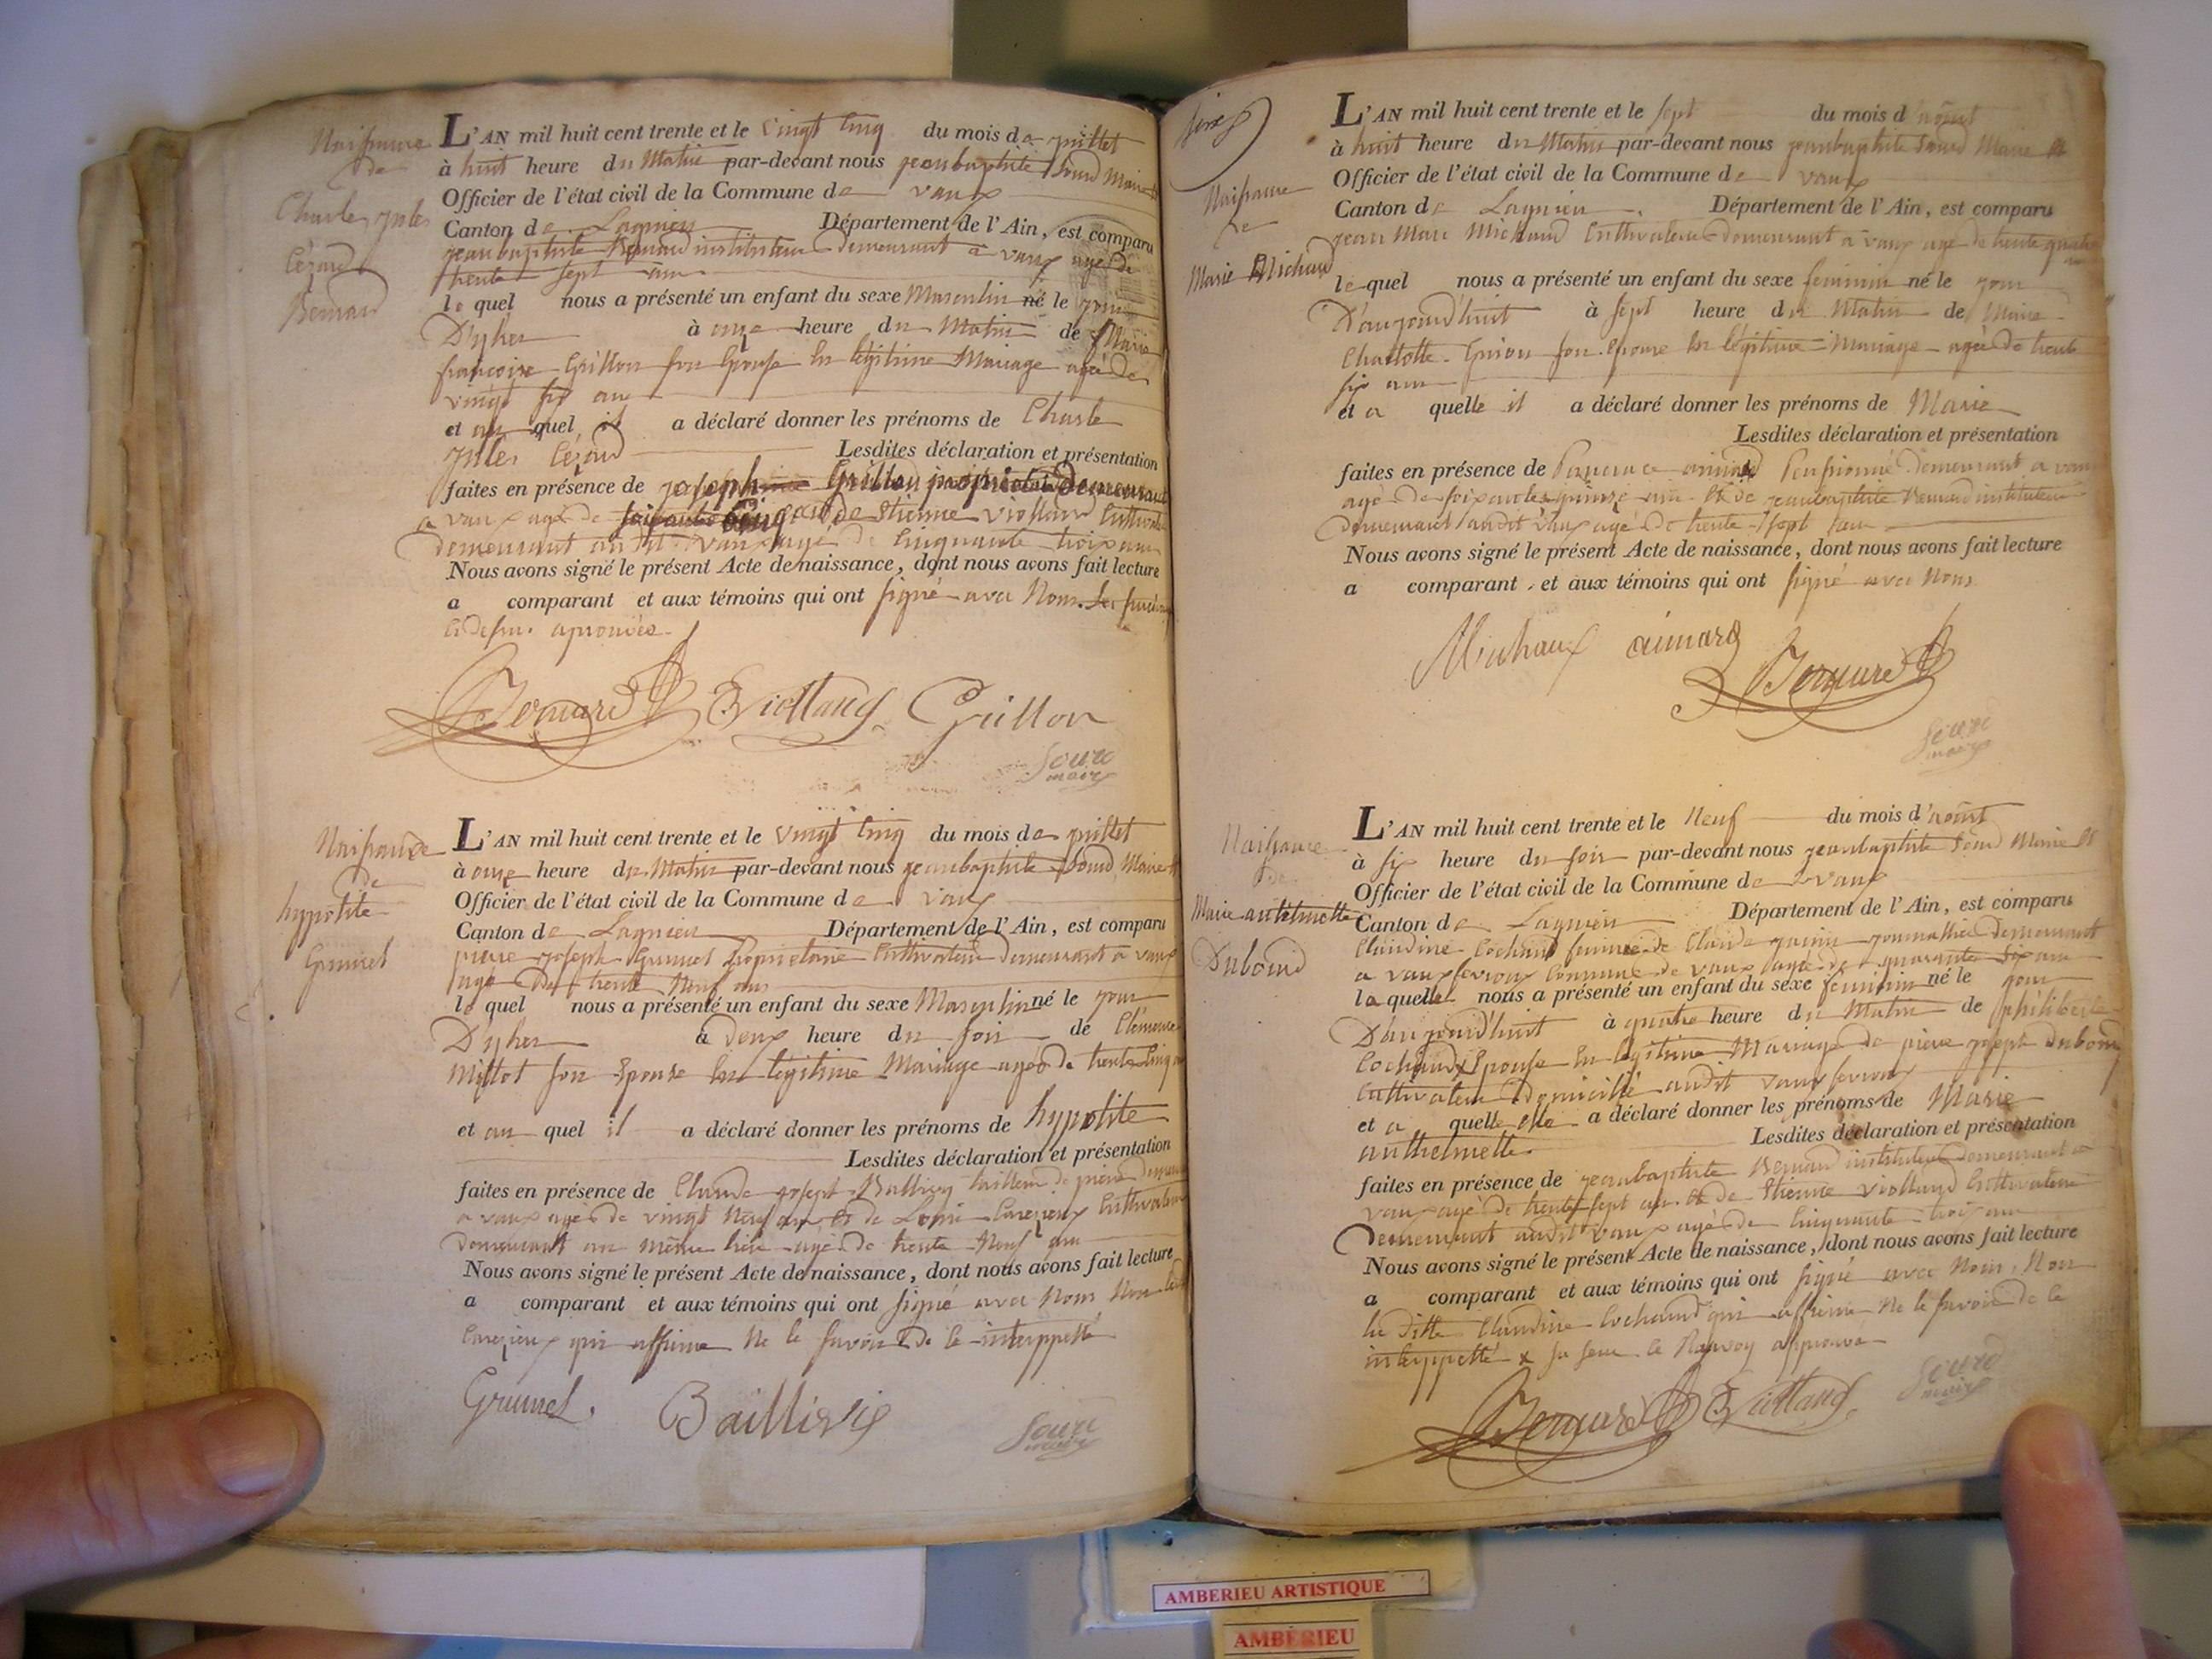 Naissance
de
Charle jules
Cézard
Bernard
L'AN mil huit cent trente et le vingt cinq du mois de juillet
à huit heure du Matin par-devant nous jeanbaptiste Sourd Maire et
Officier de l'état civil de la Commune de vaux
Canton de Lagnieu Département de l'Ain, est comparu
jeanbaptiste Bernard instituteur demeurant a vaux agé de
trente sept ans
le quel nous a présenté un enfant du sexe Masculin né le jour
D'yher à onze heure du Matin de Marie
francoise Grillon son Epouse En légitime Mariage agée de
vingt six ans
et au quel il a déclaré donner les prénoms de Charle
jules Cézard Lesdites déclaration et présentation
faites en présence de joseph Grillon propriétaire Demeurant
a vaux agé de soixante cinq ans et de Etienne Violland Cultivateur
demeurant au dit vaux agé de Cinquante trois ans
Nous avons signé le présent Acte de naissance, dont nous avons fait lecture
a comparant et aux témoins qui ont signé avec Nous.
Ci dessus aprouvés.
Bernard Violland Grillon
Sourd
maire
Naissance
de
hypolite
Grumet
L'AN mil huit cent trente et le vingt cinq du mois de juillet
à onze heure du Matin par-devant nous jeanbaptiste Sourd Maire et
Officier de l'état civil de la Commune de vaux
Canton de Lagnieu Département de l'Ain, est comparu
pierre joseph Grumet Propriétaire Cultivateur demeurant a vaux
agé De trente Neuf ans
le quel nous a présenté un enfant du sexe Masculin né le jour
D'yher à deux heure du soir de Clémence
Millot son Epouse En légitime Mariage agée de trente cinq ans
et au quel il a déclaré donner les prénoms de hypolite
Lesdites déclaration et présentation
faites en présence de Claude joseph Ballivy tailleur de pierre
a vaux agé de vingt Neuf ans et de Louis Carezieux Cultivateur
demeurant au même lieu agé de trente Neuf ans
Nous avons signé le présent Acte de naissance, dont nous avons fait lecture
a comparant et aux témoins qui ont signé avec Nous Non
Carezieux qui affirme Ne le savoir de ce interppellé
Grumet. Baillivis
Sourd
maire
Naissance
de
Marie Michaud
L'AN mil huit cent trente et le sept du mois d'aôust
à huit heure du Matin par-devant nous jeanbaptiste Sourd Maire et
Officier de l'état civil de la Commune de vaux
Canton de Lagnieu. Département de l'Ain, est comparu
jean Marc Michaud Cultivateur demeurant a vaux agé de trente quatre
ans
le quel nous a présenté un enfant du sexe feminin né le jour
D'aujourd'huit à sept heure du Matin de Marie
Charlotte son Epouse En légitime Mariage agée De trente
six ans
et a quelle il a déclaré donner les prénoms de Marie
Lesdites déclaration et présentation
faites en présence de aimard Pensionné demeurant a vaux
agé de soixante quinze ans et de jeanbaptiste Bernard instituteur
demeurant audit vaux agé de trente sept ans
Nous avons signé le présent Acte de naissance, dont nous avons fait lecture
a comparant et aux témoins qui ont signé avec Nous
Michaux aimard
Bernard
Sourd
maire
Naissance
de
Marie anthelmette
Dubourd
L'AN mil huit cent trente et le Neuf du mois d'aôust
à six heure du soir par-devant nous jeanbaptiste Sourd Maire et
Officier de l'état civil de la Commune de vaux
Canton de Lagnieu Département de l'Ain, est comparu
Claudine Cochaud femme de Claude journallier demeurant
a vaux fevroux Commune de vaux agée de quarante six ans
la quelle nous a présenté un enfant du sexe feminin né le jour
D'aujourd'huit à quatre heure du Matin de philiberte
Cochaud Epouse En légitime Mariage de pierre joseph Dubourd
Cultivateur Domicilié audit vaux fevroux
et a quelle elle a déclaré donner les prénoms de Marie
anthelmette. Lesdites déclaration et présentation
faites en présence de jeanbaptiste Bernard instituteur demeurant a
vaux agé De trente sept ans et de Etienne Violland Cultivateur
Demeurant audit vaux agé De Cinquante trois ans
Nous avons signé le présent Acte de naissance, dont nous avons fait lecture
a comparant et aux témoins qui ont signé avec Nous, Non
la ditte Claudine Cochaud qui affirme Ne le savoir de ce
interppellé x le Renvoy approuvé
Bernard Violland
Sourd
maire
AMBERIEU ARTISTIQUE
AMBÉRIEU